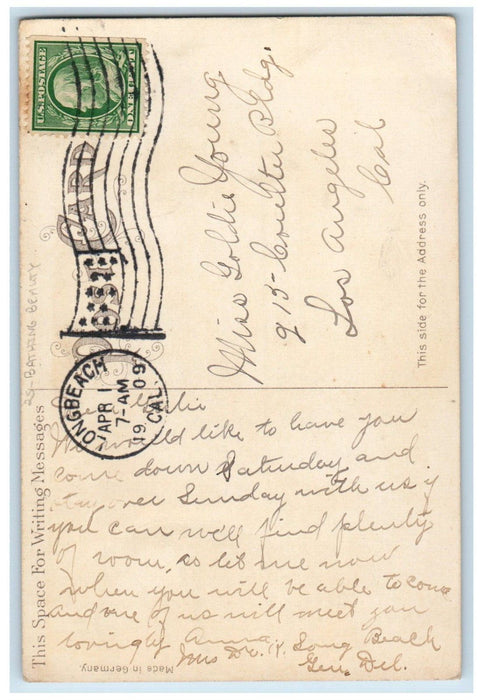 U.S. POSTAGE
ONE CENT
POST CARD
LONGBEACH
CAL.
APR 1
7-AM
1909
Miss Goldie Young
915- Coulter Bldg.
Los Angeles
Cal
This side for the Address only.
25-BATHING BEAUTY
This Space For Writing Messages
Dear Goldie
We would like to have you
come down Saturday and
stay over Sunday with us if
you can will find plenty
of room, so let me now
when you will be able to come
and one of us will meet you
lovingly Anna.
Mrs Dr. K. Long Beach
Gen. Del.
Made in Germany.